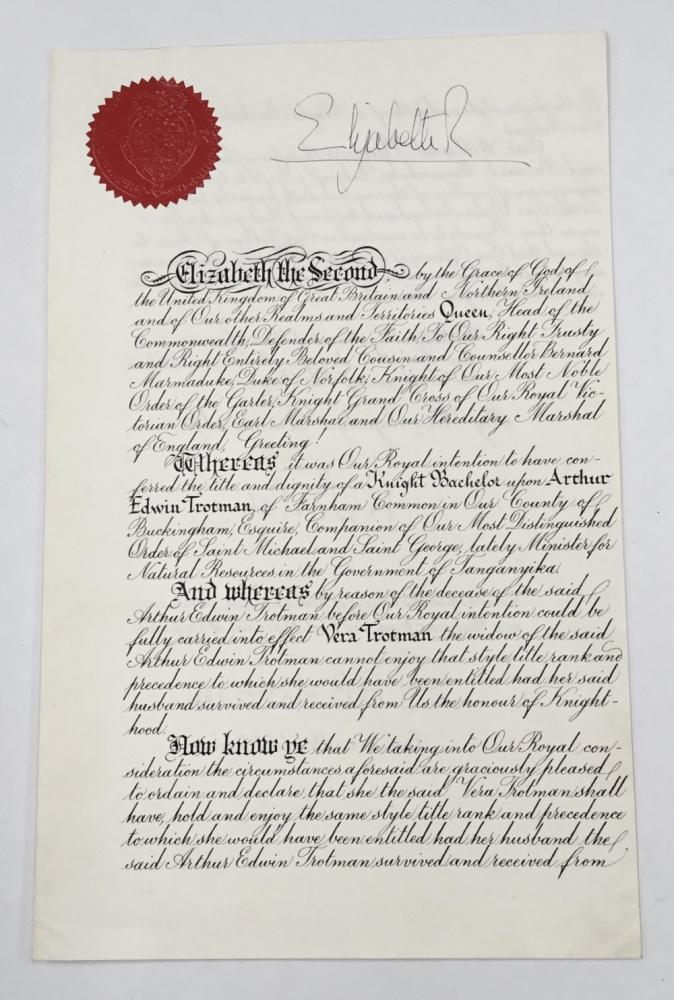 Elizabeth R
Elizabeth the Second, by the Grace of God of
the United Kingdom of Great Britain and Northern Ireland
and of Our other Realms and Territories Queen, Head of the
Commonwealth, Defender of the Faith, To Our Right Trusty
and Right Entirely Beloved Cousin and Counsellor Bernard
Marmaduke, Duke of Norfolk, Knight of Our Most Noble
Order of the Garter, Knight Grand Cross of Our Royal Vic-
torian Order, Earl Marshal and Our Hereditary Marshal
of England, Greeting!
Whereas it was Our Royal intention to have con-
ferred the title and dignity of a Knight Bachelor upon Arthur
Edwin Trotman, of Farnham Common in Our County of
Buckingham, Esquire, Companion of Our Most Distinguished
Order of Saint Michael and Saint George, lately Minister for
Natural Resources in the Government of Tanganyika.
And whereas by reason of the decease of the said
Arthur Edwin Trotman before Our Royal intention could be
fully carried into effect Vera Trotman the widow of the said
Arthur Edwin Trotman cannot enjoy that style title rank and
precedence to which she would have been entitled had her said
husband survived and received from Us the honour of Knight-
hood.
Now know ye that We taking into Our Royal con-
sideration the circumstances aforesaid are graciously pleased
to ordain and declare that she the said Vera Trotman shall
have, hold and enjoy the same style title rank and precedence
to which she would have been entitled had her husband the
said Arthur Edwin Trotman survived and received from